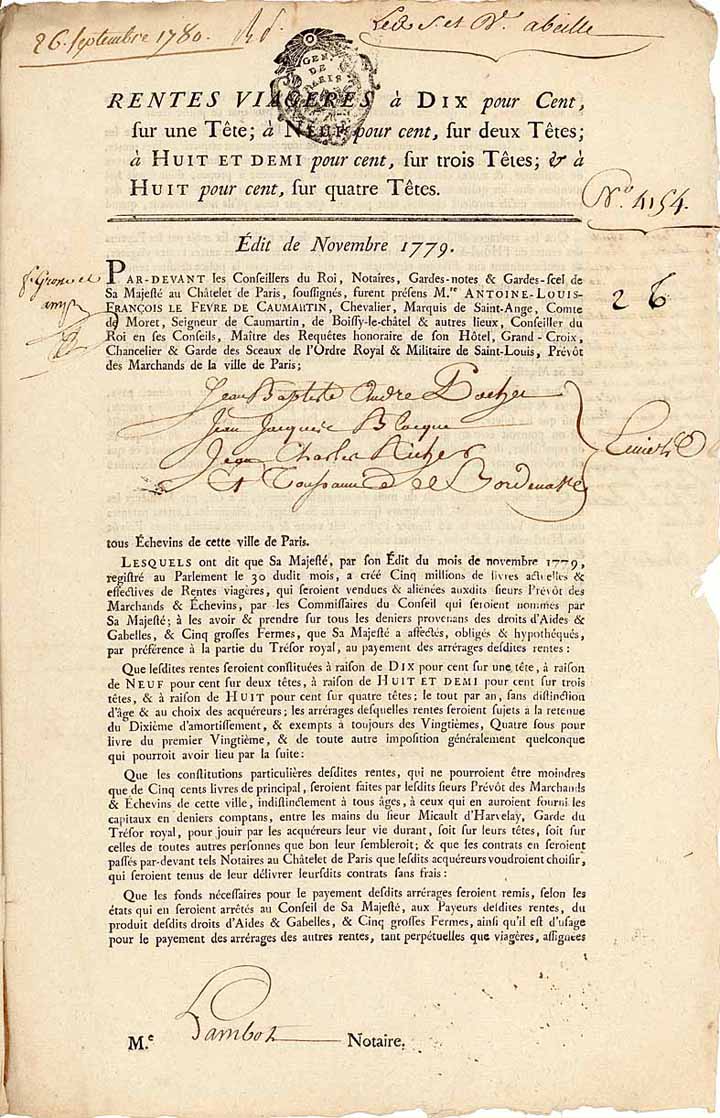 26. Septembre 1780.
abeille
GEN.
DE
PARIS
RENTES VIAGERES à DIX pour Cent,
ſur une Tête; à NEUF pour cent, ſur deux Têtes;
à HUIT ET DEMI pour cent, ſur trois Têtes; & à
HUIT pour cent, ſur quatre Têtes.
N.º 4154.
Édit de Novembre 1779.
26
PAR-DEVANT les Conſeillers du Roi, Notaires, Gardes-notes & Gardes-ſcel de
Sa Majeſté au Châtelet de Paris, ſouſſignés, furent préſens M.re ANTOINE-LOUIS-
FRANÇOIS LE FEVRE DE CAUMARTIN, Chevalier, Marquis de Saint-Ange, Comte
de Moret, Seigneur de Caumartin, de Boiſſy-le-châtel & autres lieux, Conſeiller du
Roi en ſes Conſeils, Maître des Requêtes honoraire de ſon Hôtel, Grand-Croix,
Chancelier & Garde des Sceaux de l'Ordre Royal & Militaire de Saint-Louis, Prévôt
des Marchands de la ville de Paris;
Jean Baptiste Andre
Jean Jacques
Jean Charles Richer
Et
tous Échevins de cette ville de Paris.
LESQUELS ont dit que Sa Majeſté, par ſon Édit du mois de novembre 1779,
regiſtré au Parlement le 30 dudit mois, a créé Cinq millions de livres actuelles &
effectives de Rentes viagères, qui ſeroient vendues & aliénées auxdits ſieurs Prévôt des
Marchands & Échevins, par les Commiſſaires du Conſeil qui ſeroient nommés par
Sa Majeſté; à les avoir & prendre ſur tous les deniers provenans des droits d'Aides &
Gabelles, & Cinq groſſes Fermes, que Sa Majeſté a affectés, obligés & hypothéqués,
par préférence à la partie du Tréſor royal, au payement des arrérages deſdites rentes:
Que leſdites rentes ſeroient conſtituées à raiſon de DIX pour cent ſur une tête, à raiſon
de NEUF pour cent ſur deux têtes, à raiſon de HUIT ET DEMI pour cent ſur trois
têtes, & à raiſon de HUIT pour cent ſur quatre têtes; le tout par an, ſans diſtinction
d'âge & au choix des acquéreurs; les arrérages deſquelles rentes ſeroient ſujets à la retenue
du Dixième d'amortiſſement, & exempts à toujours des Vingtièmes, Quatre ſous pour
livre du premier Vingtième, & de toute autre impoſition généralement quelconque
qui pourroit avoir lieu par la ſuite:
Que les conſtitutions particulières deſdites rentes, qui ne pourroient être moindres
que de Cinq cents livres de principal, ſeroient faites par leſdits ſieurs Prévôt des Marchands
& Échevins de cette ville, indiſtinctement à tous âges, à ceux qui en auroient fourni les
capitaux en deniers comptans, entre les mains du ſieur Micault d'Harvelay, Garde du
Tréſor royal, pour jouir par les acquéreurs leur vie durant, ſoit ſur leurs têtes, ſoit ſur
celles de toutes autres perſonnes que bon leur ſembleroit; & que les contrats en ſeroient
paſſés par-devant tels Notaires au Châtelet de Paris que leſdits acquéreurs voudroient choiſir,
qui ſeroient tenus de leur délivrer leurſdits contrats ſans frais:
Que les fonds néceſſaires pour le payement deſdits arrérages ſeroient remis, ſelon les
états qui en ſeroient arrêtés au Conſeil de Sa Majeſté, aux Payeurs deſdites rentes, du
produit deſdits droits d'Aides & Gabelles, & Cinq groſſes Fermes, ainſi qu'il eſt d'uſage
pour le payement des arrérages des autres rentes, tant perpétuelles que viagères, aſſignées
M.e Lambot Notaire.